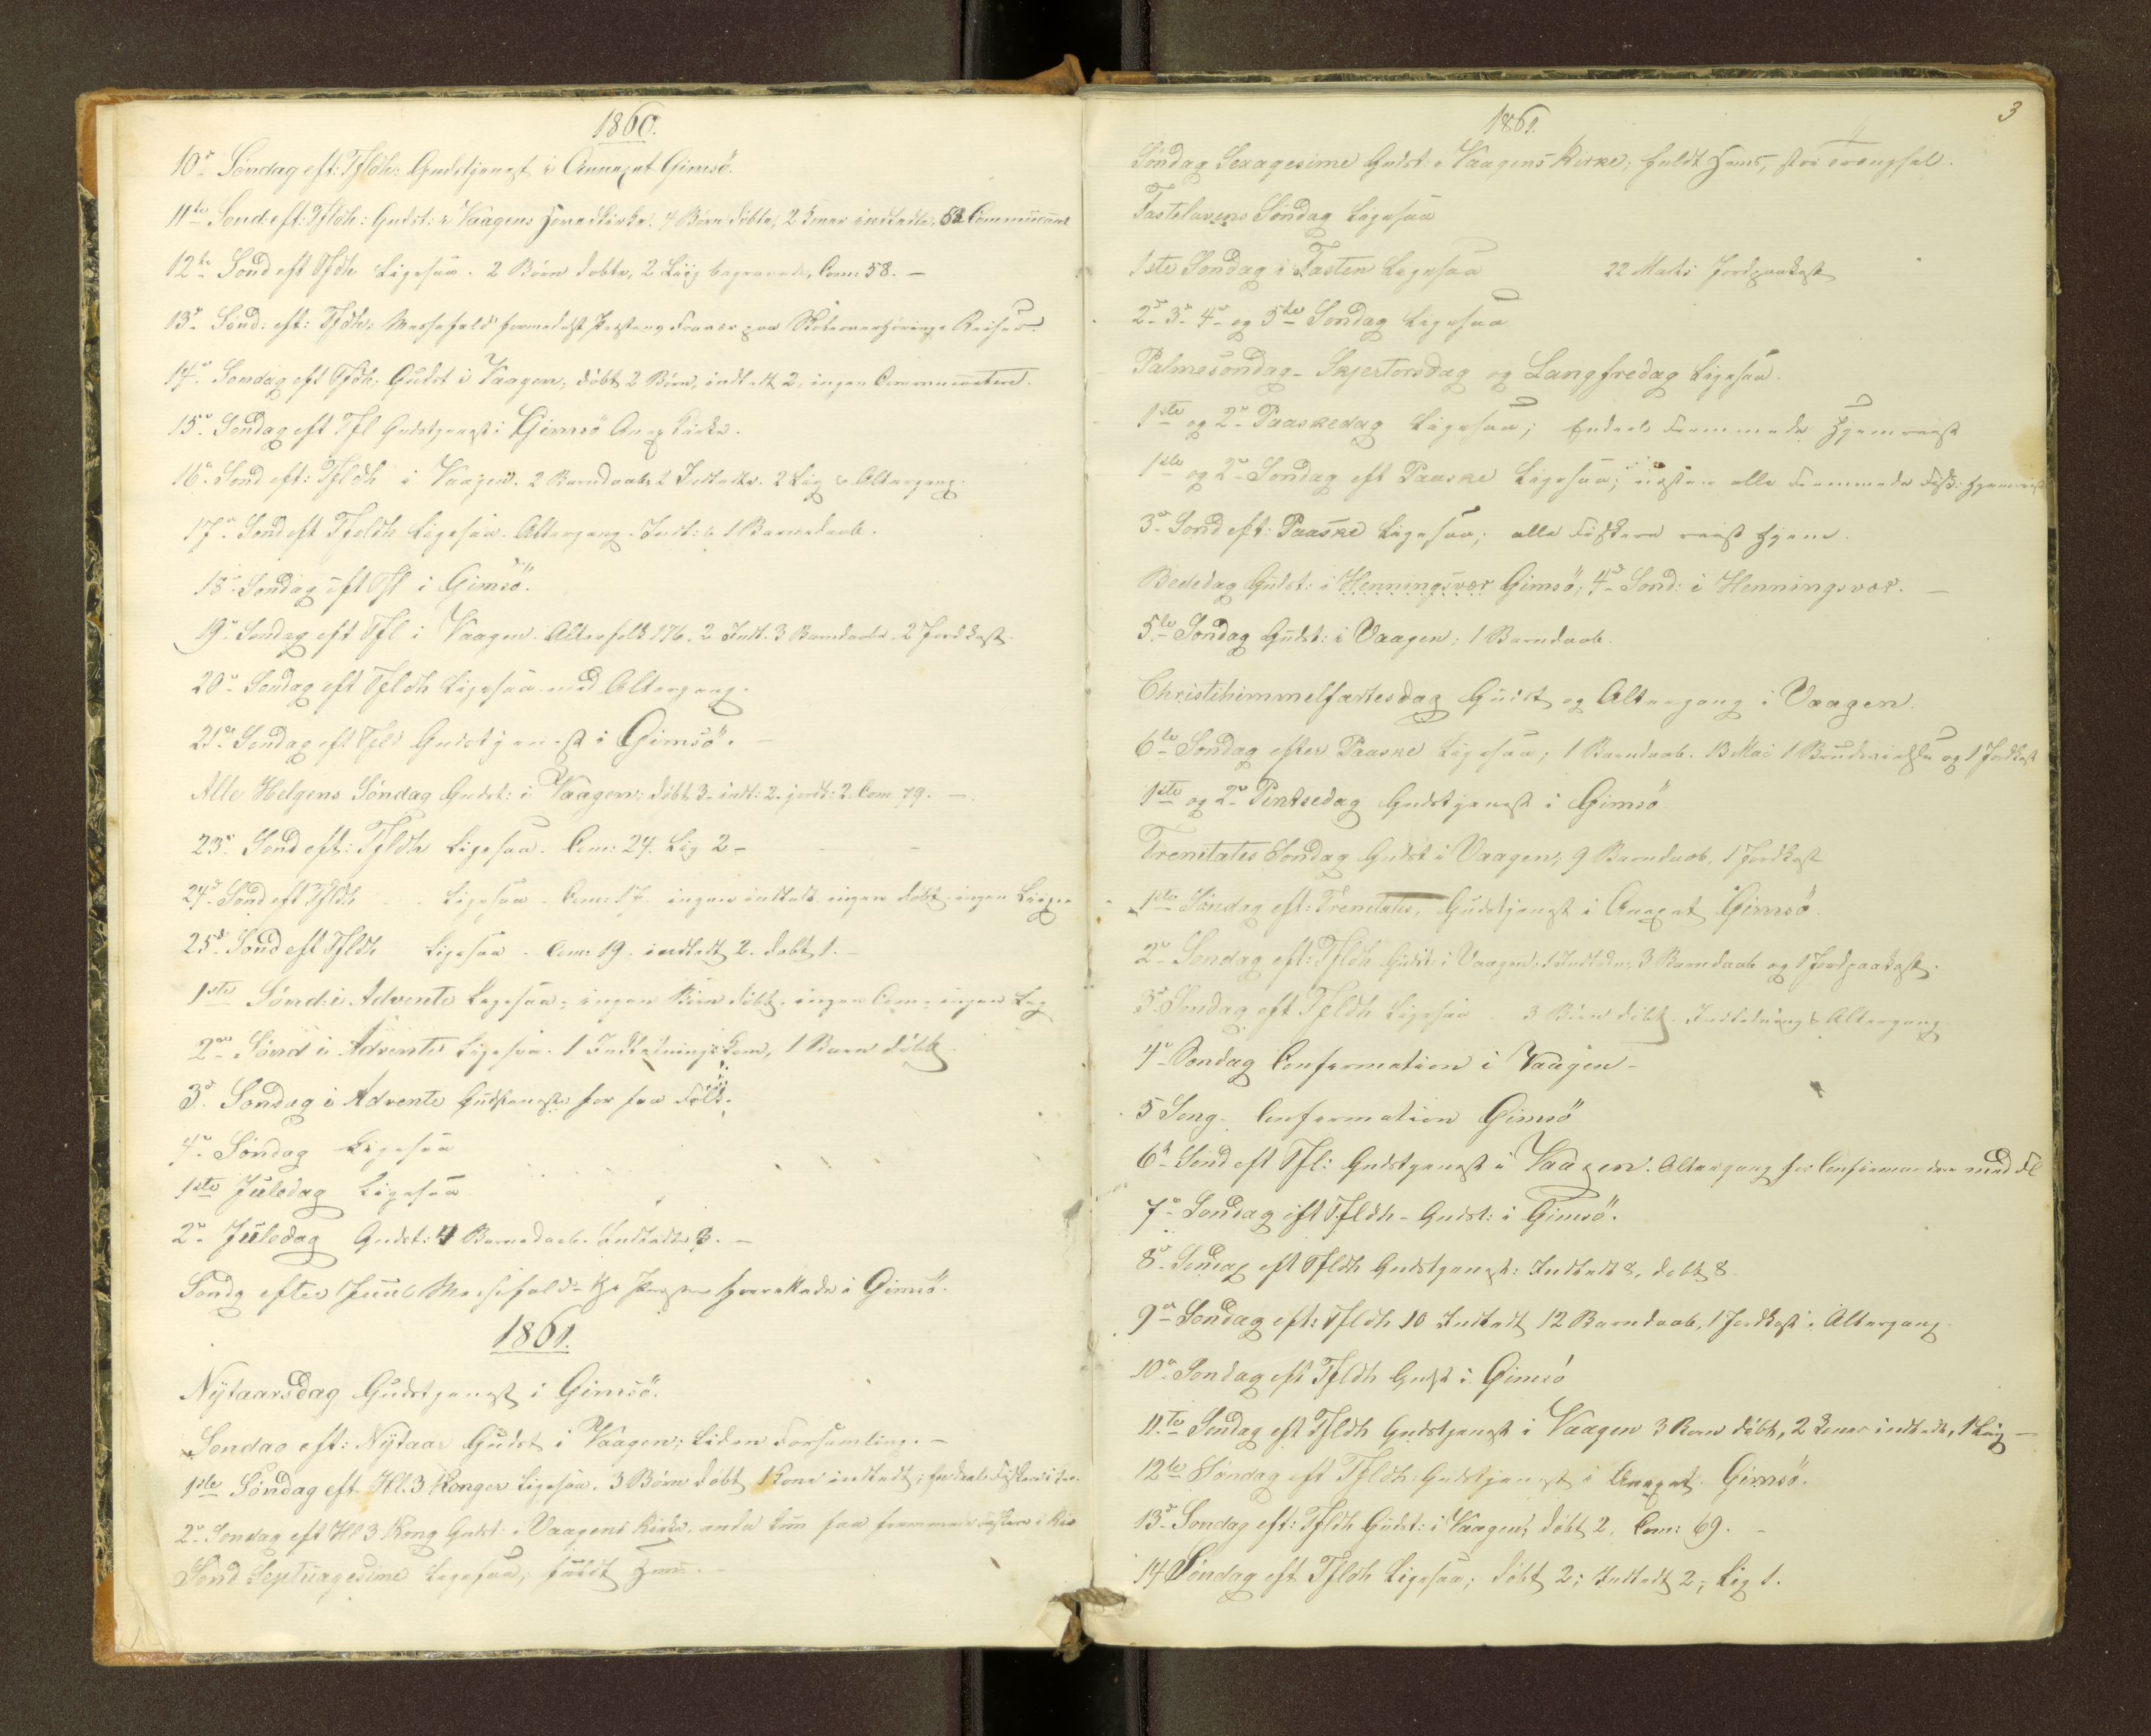 1860.
10de Söndag eft: Tfldh: Gudstjenest i Annexet Gimsö.
11te Sönd eft: Tfldh: Gudst: i Vaagens Hovedkirke. 4 Börn döbte, 2 Koner indledte. 52 Communicant
12te Sönd eft Tfldh Ligesaa. 2 Börn döbte, 2 Liig begravede, Com: 58. –
13de Sönd: eft: Tfldh: Messefald formedelst Præstens Fravær paa Skoleoverhörings Reiser.
14de Söndag eft Tfldh: Gudst i Vaagen, döbt 2 Börn, indledt 2, ingen Communicantere.
15de Söndag eft Tfl Gudstjenest i Gimsö Anex Kirke.
16de Sönd eft: Tfldh i Vaagen. 2 Barndaab 2 Indledte. 2 Lig & Altergang.
17de Sönd eft Tfoldh Ligesaa. Altergang. Indl: & 1 Barnedaab.
18de Söndag eft Tfl i Gimsö.
19de Söndag eft Tfl i Vaagen. Alterfolk 176. 2 Indl. 3 Barndaabe. 2 Jordkast.
20de Söndag eft Tfldh Ligesaa med Altergang.
21de Söndag eft Tfld Gudstjenest i Gimsö. –
Alle Helgens Söndag Gudst: i Vaagen; döbt 3 – indl: 2. jordk: 2. Com 79. –
23de Sönd eft: Tfldh Ligesaa. Com: 24. Lig 2 –
24de Sönd eft Tfldh Ligesaa. Com: 17. ingen indledt ingen döbt ingen Liig
25de Sönd eft Tfldh Ligesaa. Com: 19. indledt 2. döbt 1. –
1ste Sönd: i Advente Ligesaa – ingen Börn döbt – ingen Com – ingen Lig
2den Sönd i Advente Ligesaa. 1 Indledningskone, 1 Barn döbt.
3de Söndag i Advente Gudstjeneste for faa Folk.
4de Söndag Ligesaa
1ste Juledag Ligesaa
2den Juledag Gudst: 4 Barnedaab. Indledte 3. –
Söndg efter Juul Messefald – Præsten i Gimsö.
1861.
Nytaarsdag Gudstjenest i Gimsö.
Söndag eft: Nytaar Gudst i Vaagen; Liden Forsamling. –
1ste Söndag eft Hl. 3 Konger Ligesaa. 3 Börn döbt 1 Kone indledt; endeel Fiskere i
2den Söndag eft Hl 3 Kong Gudst: i Vaagens Kirke, endu kun faa fremmede Fiskere i Kir
Sönd Septuagesime Ligesaa, fuldt Huus. –
3
1861.
Söndag Sexagesime Gudst: i Vaagens Kirke; fuldt Huus, stor Trængsel.
Fastelavens Söndag Ligesaa
1ste Söndag i Fasten Ligesaa 22 Marts Jordpaakast
2de 3de 4de og 5te Söndag Ligesaa
Palmesöndag – Skjertorsdag og Langfredag Ligesaa.
1ste og 2den Paaskedag Ligesaa; Endeel Fremmede Hjemreist
1ste og 2den Söndag eft Paaske Ligesaa; næsten alle Fremmede Fisk: hjemreist
3de Sönd eft: Paaske Ligesaa; alle Fiskere reist hjem.
Bededag Gudst: i Henningsvær Gimsö; 4de Sönd: i Henningsvær. –
5te Söndag Gudst: i Vaagen; 1 Barndaab.
Christihimmelfartesdag Gudst og Altergang i Vaagen.
6te Söndag efter Paaske Ligesaa; 1 Barndaab. 13 Mai 1 Brudevielse og 1 Jordkast
1ste og 2den Pintsedag Gudstjenest i Gimsö
Trenitates Söndag Gudst i Vaagen; 9 Barndaab, 1 Jordkast
1ste Söndag eft: Trenitates, Gudstjenest i Anexet Gimsö.
2den Söndag eft: Tfldh Gudst: i Vaagen. 1 Indledn:, 3 Barndaab og 1 Jordpaakast.
3de Söndag eft Tfldh Ligesaa 3 Börn döbt. Indledning & Altergang
4de Söndag Confirmation i Vaagen –
5 Söng. Confirmation Gimsö
6te Sönd eft Tfl: Gudstjenest i Vaagen. Altergang for Confirmandere med fl
7de Söndag eft Tfldh – Gudst: i Gimsö.
8de Söndag eft Tfldh Gudstjenest: Indledt 8, döbt 8.
9de Söndag eft: Tfldh 10 Indledt 12 Barndaab, 1 Jordkast. Altergang.
10de Söndag eft Tfldh Gudst i Gimsö
11.te Söndag eft Tfldh Gudstjenest i Vaagen 3 Börn döbt, 2 Koner indledt, 1 Liig –
12te Söndag eft Tfldh: Gudstjenest i Anexet Gimsö.
13de Söndag eft: Tfldh Gudst: i Vaagen, döbt 2, Com: 69. –
14 Söndag eft Tfldh Ligesaa; döbt 2; Indledt 2; Lig 1.